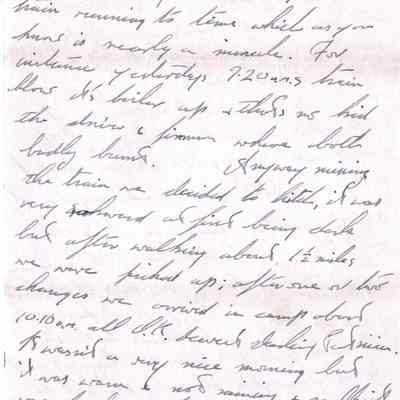 train running to time which as you
know is nearly a miracle. For
instance yesterdays 7.20 a.m. train
blew its boiler up & thats no kid
the driver & fireman where both
badly burnt. Anyway missing
the train we decided to hitch, it was
very awkward at first being dark
but after walking about 1½ miles
we were picked up; after one or two
changes we arrived in camp about
10.10 am. all O.K. dearest darling
It wasn't a very nice morning but
it was warm & not raining &